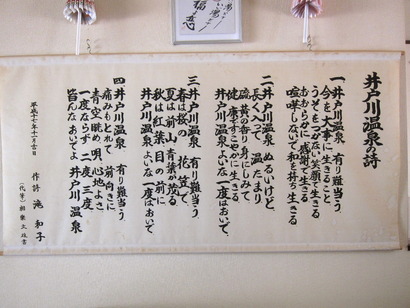 井戸川温泉の詩
一 井戸川温泉 有り難当う
今を大事に生きること
うそをつかない笑顔で生きる
おおらかに感謝で生きる
喧嘩しないで和を持ち生きる
二 井戸川温泉 ぬるいけど
長く入って 温たまり
硫黄の香り身にしみて
健康ですこやかに生きる
井戸川温泉よいな一度はおいで
三 井戸川温泉 有り難当う
春は桜の 花笠で
夏は前山 青葉が茂る
秋は紅葉 目の前に
井戸川温泉よいな一度はおいで
四 井戸川温泉 有り難当う
痛みもとれて 前向きに
青空眺め 唄 心地よさ
一度ならず 二度三度
皆んなおいでよ 井戸川温泉
平成十七年十一月吉日
作詩 滝 和子
(代筆) 相楽文政書